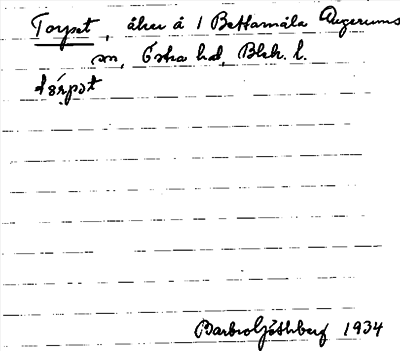 Torpet, åker å 1 Bettamåla Augerums
sn, Östra hd, Blek. l.
Barbro Göthberg 1934